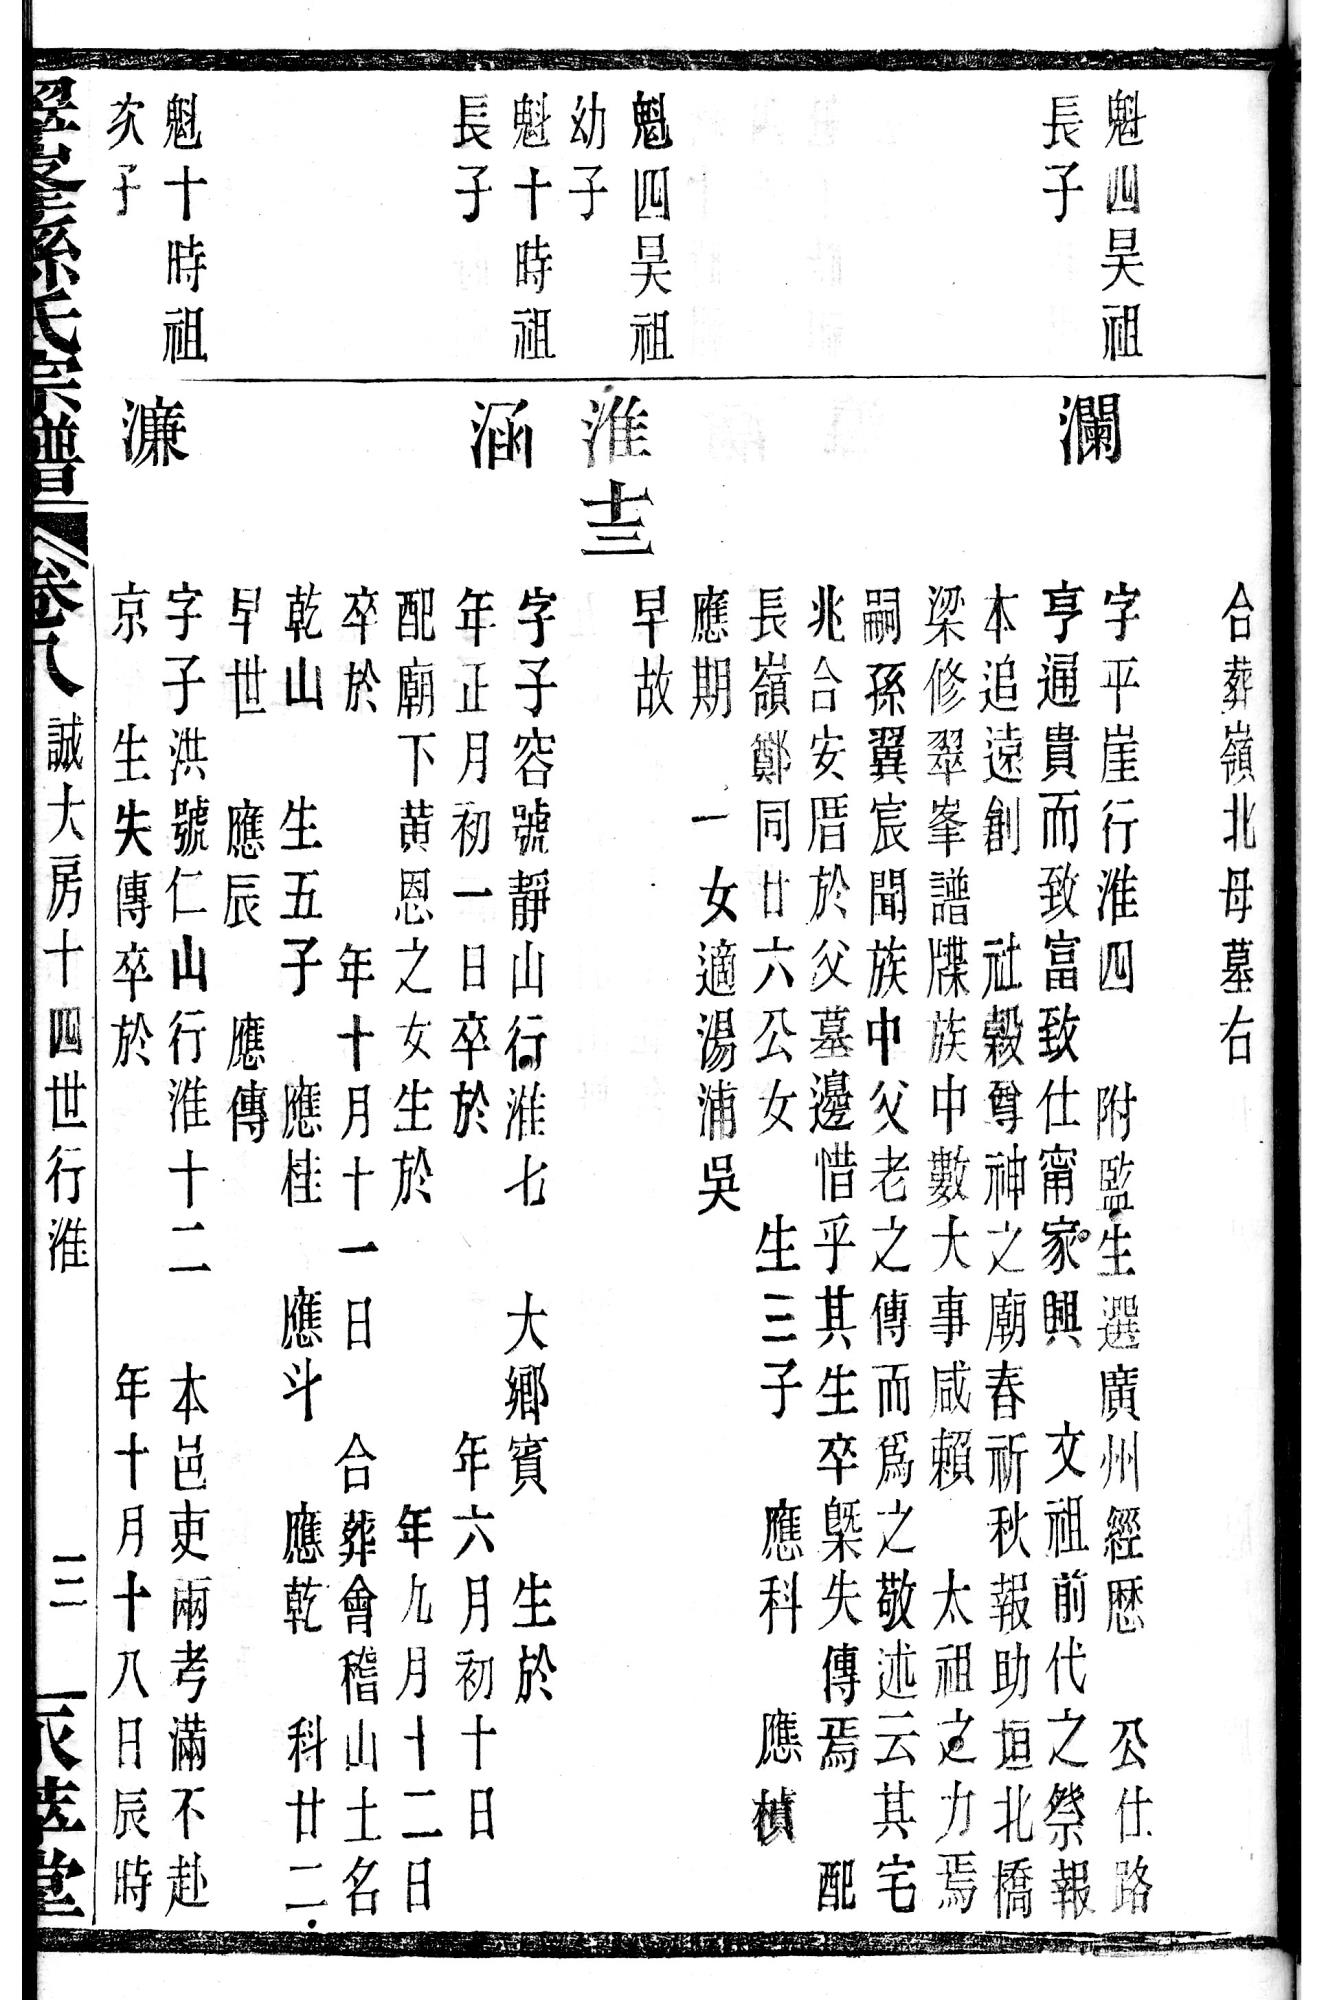 合葬嶺北母墓右
魁四昊祖
長子
瀾
字平崖行淮四　附監生選廣州經歷　公仕路
亨通貴而致富致仕甯家興　文祖前代之祭報
本追遠創　社穀尊神之廟春祈秋報助垣北橋
梁修翠峯譜牒族中數大事咸賴　太祖之力焉
嗣孫翼宸聞族中父老之傳而爲之敬述云其宅
兆合安厝於父墓邊惜乎其生卒槩失傳焉　配
長嶺鄭同廿六公女　生三子　應科　應槙
應期　一女適湯浦吳
魁四昊祖
幼子
淮十三
早故
魁十時祖
長子
涵
字子容號靜山行淮七　大鄉賓　生於
年正月初一日卒於　年六月初十日
配廟下黄恩之女生於　年九月十二日
卒於　年十月十一日　合葬會稽山土名
乾山　生五子　應桂　應斗　應乾　科廿二
早世　應辰　應傳
魁十時祖
次子
濂
字子洪號仁山行淮十二　本邑吏兩考滿不赴
京　生失傳卒於　年十月十八日辰時
孫氏宗譜　卷八　誠大房十四世行淮　三　堂